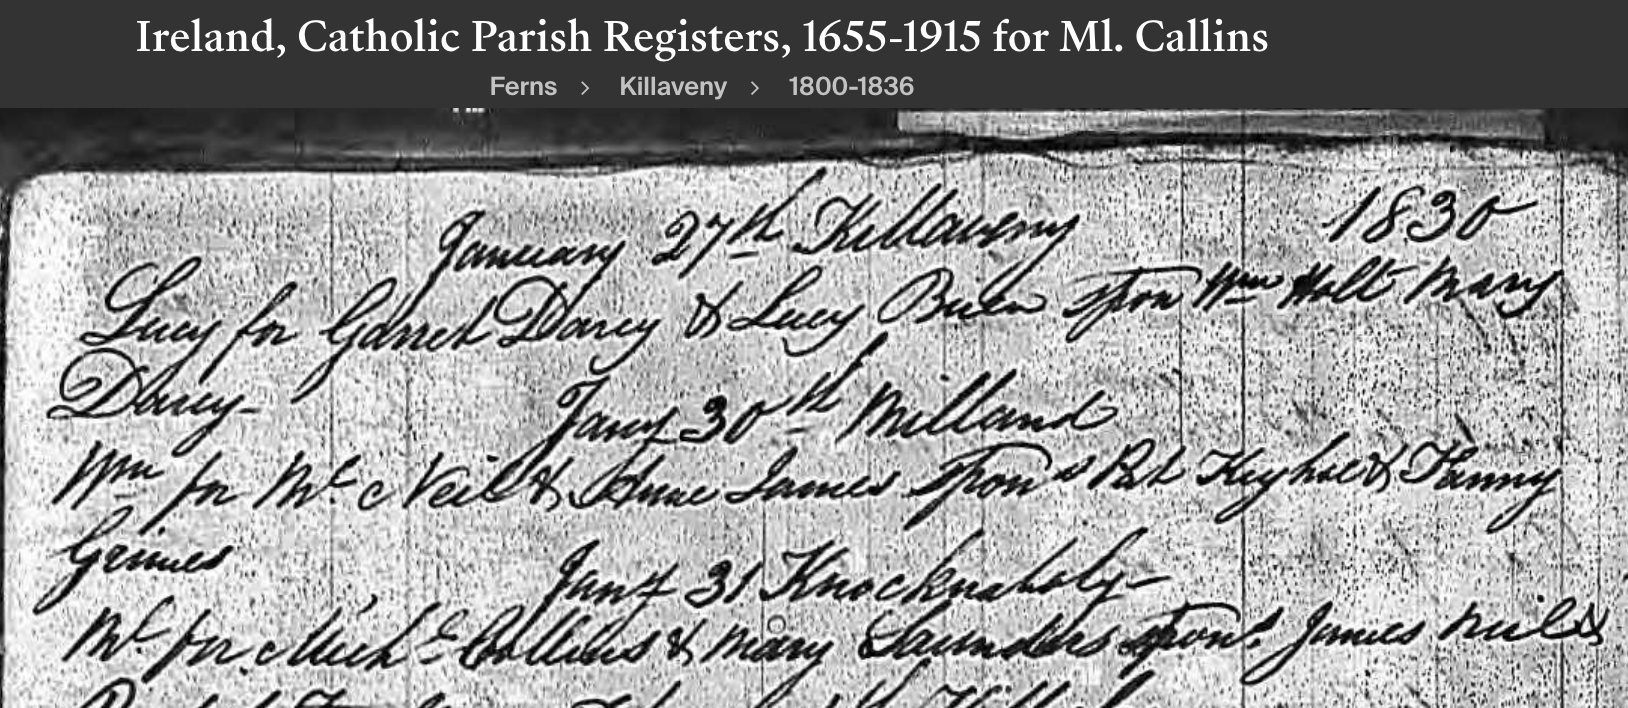 Ireland, Catholic Parish Registers, 1655-1915 for Ml. Callins
Ferns > Killaveny > 1800-1836
January 27th Killaveny 1830
Lucy for Garret Darcy & Lucy Birn spon Wm Holt Mary
Darcy
Jany 30th Milland
Wm for Ml Neil & Anne James spons Pat & Fanny
Grimes
Jany 31
Ml for Michl Collins & Mary Saunders spons James Neil &